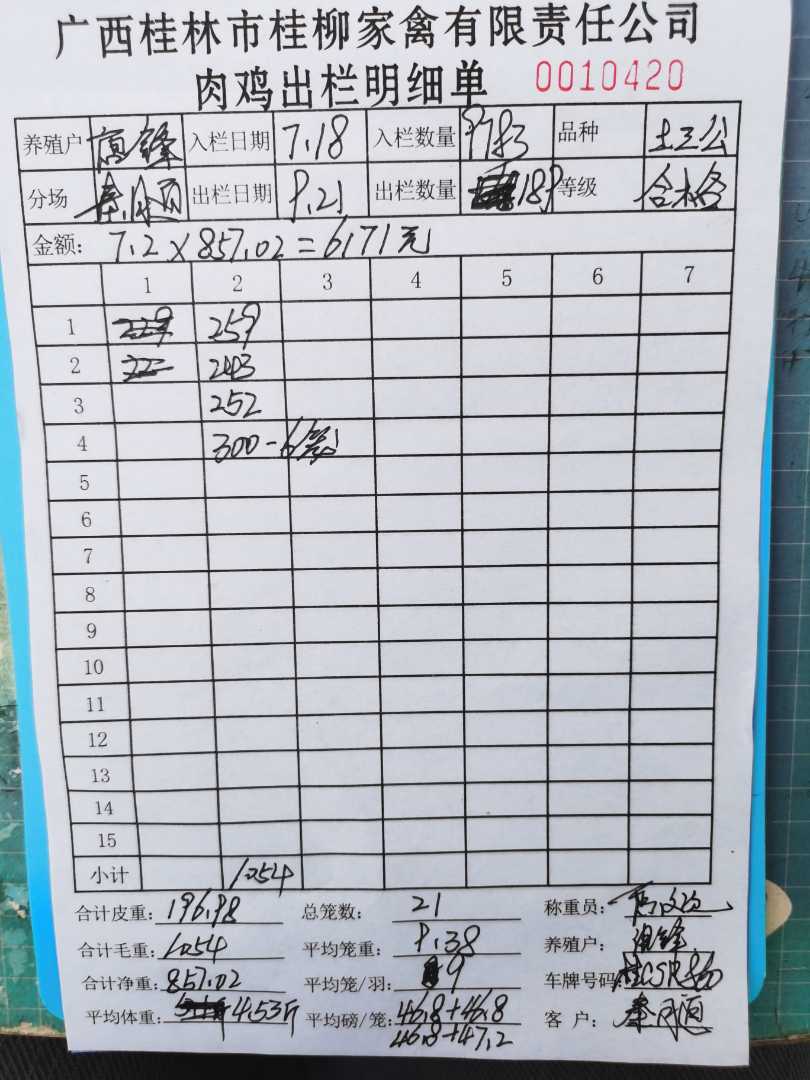 广西桂林市桂柳家禽有限责任公司
肉鸡出栏明细单 0010420
养殖户 入栏日期 7.18 入栏数量 9783 品种 土三公
分场 秦 出栏日期 9.21 出栏数量 189 等级 合格
金额: 7.2×857.02=6171元
1 2 3 4 5 6 7
1 259
2 243
3 252
4 300-6笼
5
6
7
8
9
10
11
12
13
14
15
小计 1054
合计皮重: 196.98 总笼数: 21 称重员:
合计毛重: 1054 平均笼重: 9.38 养殖户:
合计净重: 857.02 平均笼/羽: 9 车牌号码
平均体重: 4.53斤 平均磅/笼: 46.8+46.8
46.8+47.2 客户: 秦